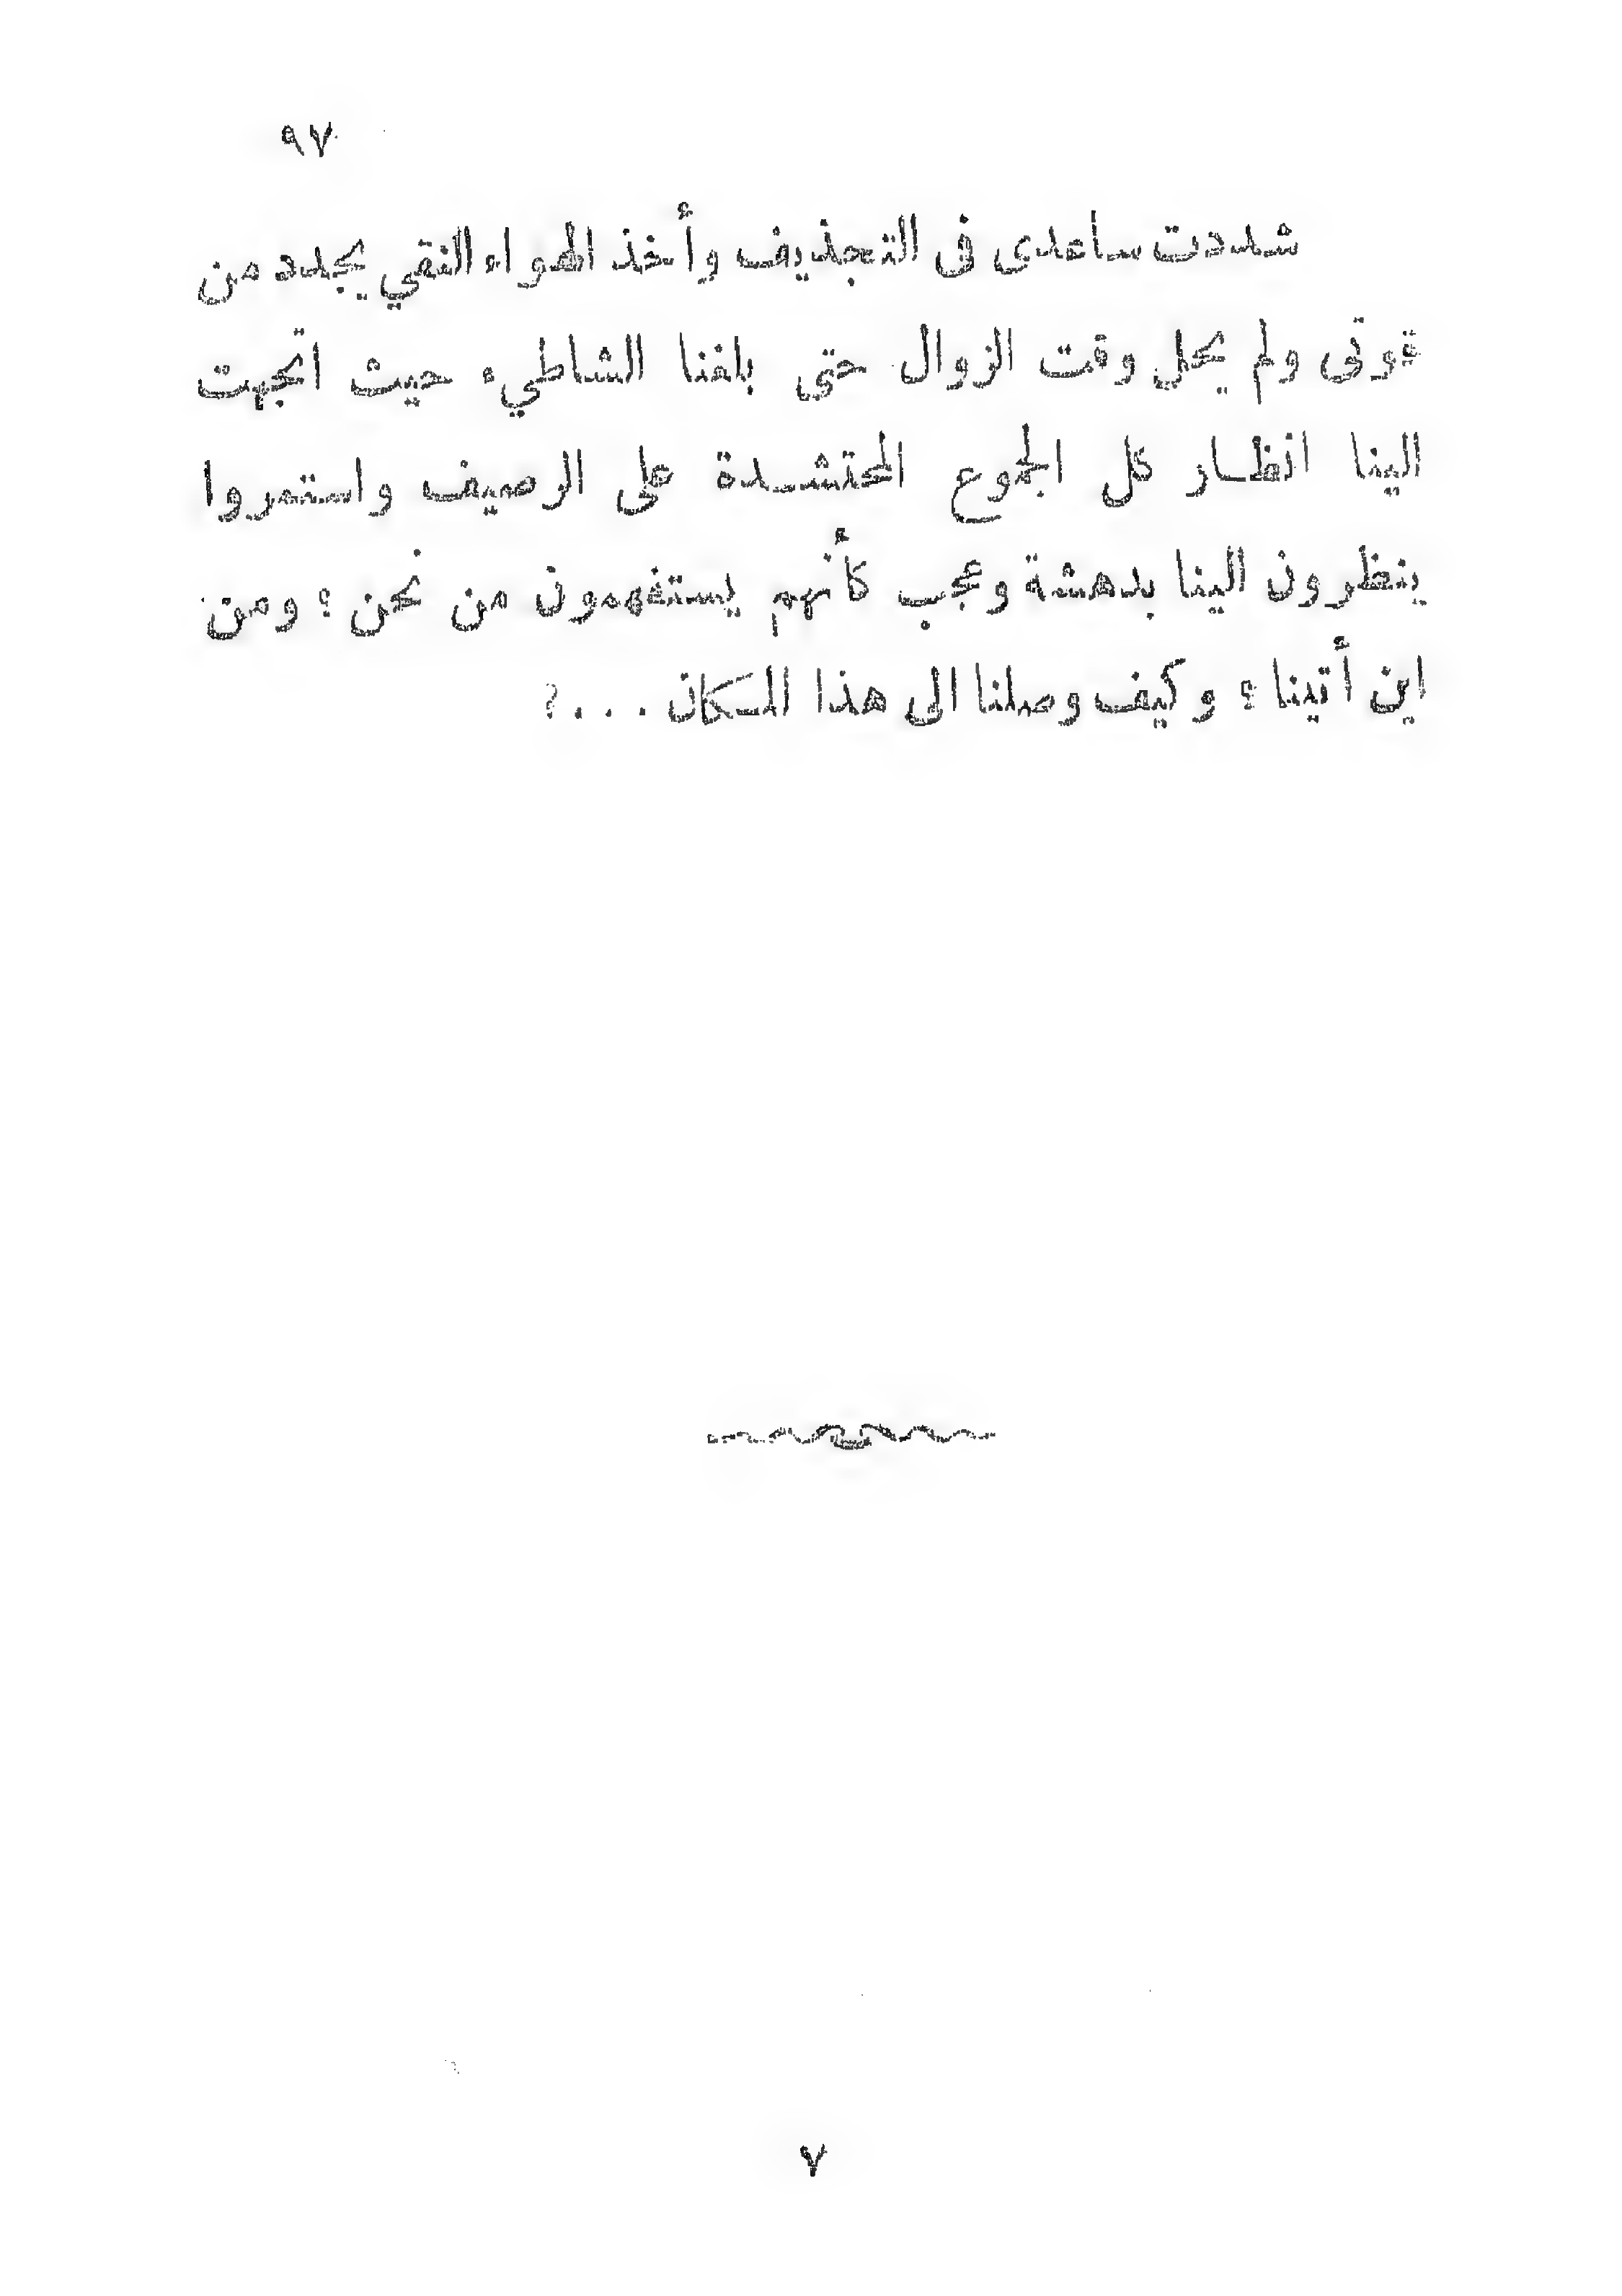 ٩٧
شددت ساعدى فى التجذيف وأخذ الهواء النقي يجدد من
قوتى ولم يحل وقت الزوال حتى بلغنا الشاطيء حيث اتجهت
الينا انظار كل الجموع المحتشدة على الرصيف واستمروا
ينظرون الينا بدهشة وعجب كأنهم يستفهمون من نحن ؟ ومن
اين أتينا ؟ وكيف وصلنا الى هذا المكان . . . ؟
٧